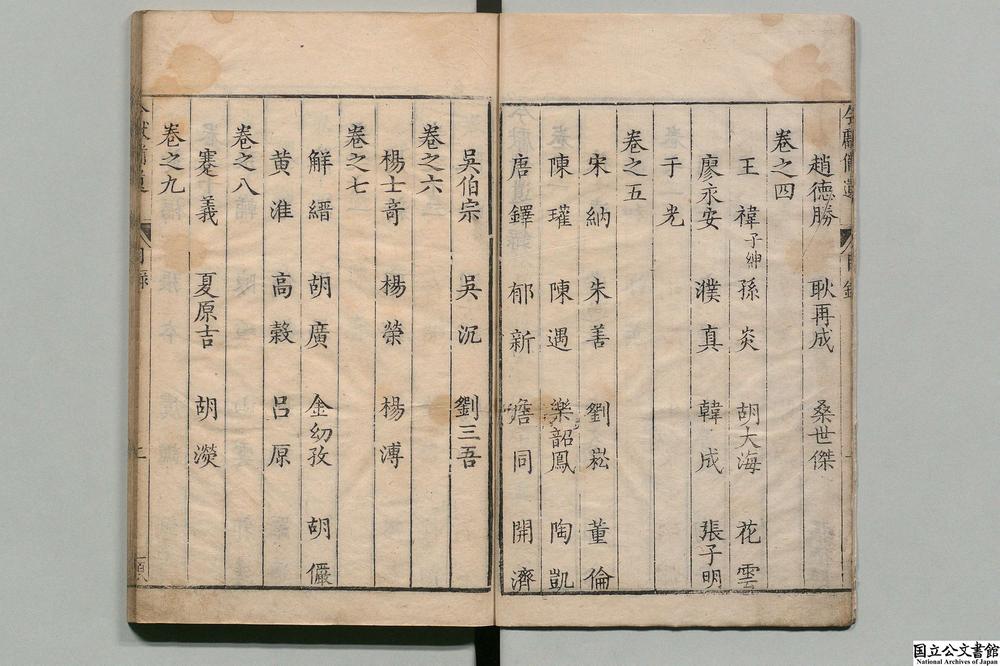 趙德勝 耿再成 桑世傑
卷之四
王禕子紳 孫炎 胡大海 花雲
廖永安 濮真 韓成 張子明
于光
卷之五
宋納 朱善 劉崧 董倫
陳瓘 陳遇 樂韶鳳 陶凱
唐鐸 郁新 詹同 開濟
吳伯宗 吳沉 劉三吾
卷之六
楊士竒 楊榮 楊溥
卷之七
解縉 胡廣 金幼孜 胡儼
黄淮 高穀 吕原
卷之八
蹇義 夏原吉 胡濙
卷之九
国立公文書館
National Archives of Japan